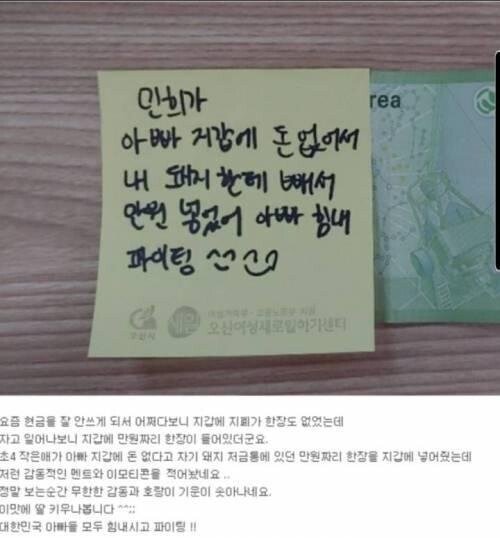 민희가
rea
아빠 지갑에 돈 없어서
내 돼지 한테 빼서
만원 넣었어 아빠 힘내
파이팅 ^^
오산시
새일
여성가족부 · 고용노동부 지정
오산여성새로일하기센터
요즘 현금을 잘 안쓰게 되서 어쩌다보니 지갑에 지폐가 한장도 없었는데
자고 일어나보니 지갑에 만원짜리 한장이 들어있더군요.
초4 작은애가 아빠 지갑에 돈 없다고 자기 돼지 저금통에 있던 만원짜리 한장을 지갑에 넣어줬는데
저런 감동적인 멘트와 이모티콘을 적어놨네요 ..
정말 보는순간 무한한 감동과 호랑이 기운이 솟아나네요.
이맛에 딸 키우나봅니다 ^^;;
대한민국 아빠들 모두 힘내시고 파이팅 !!